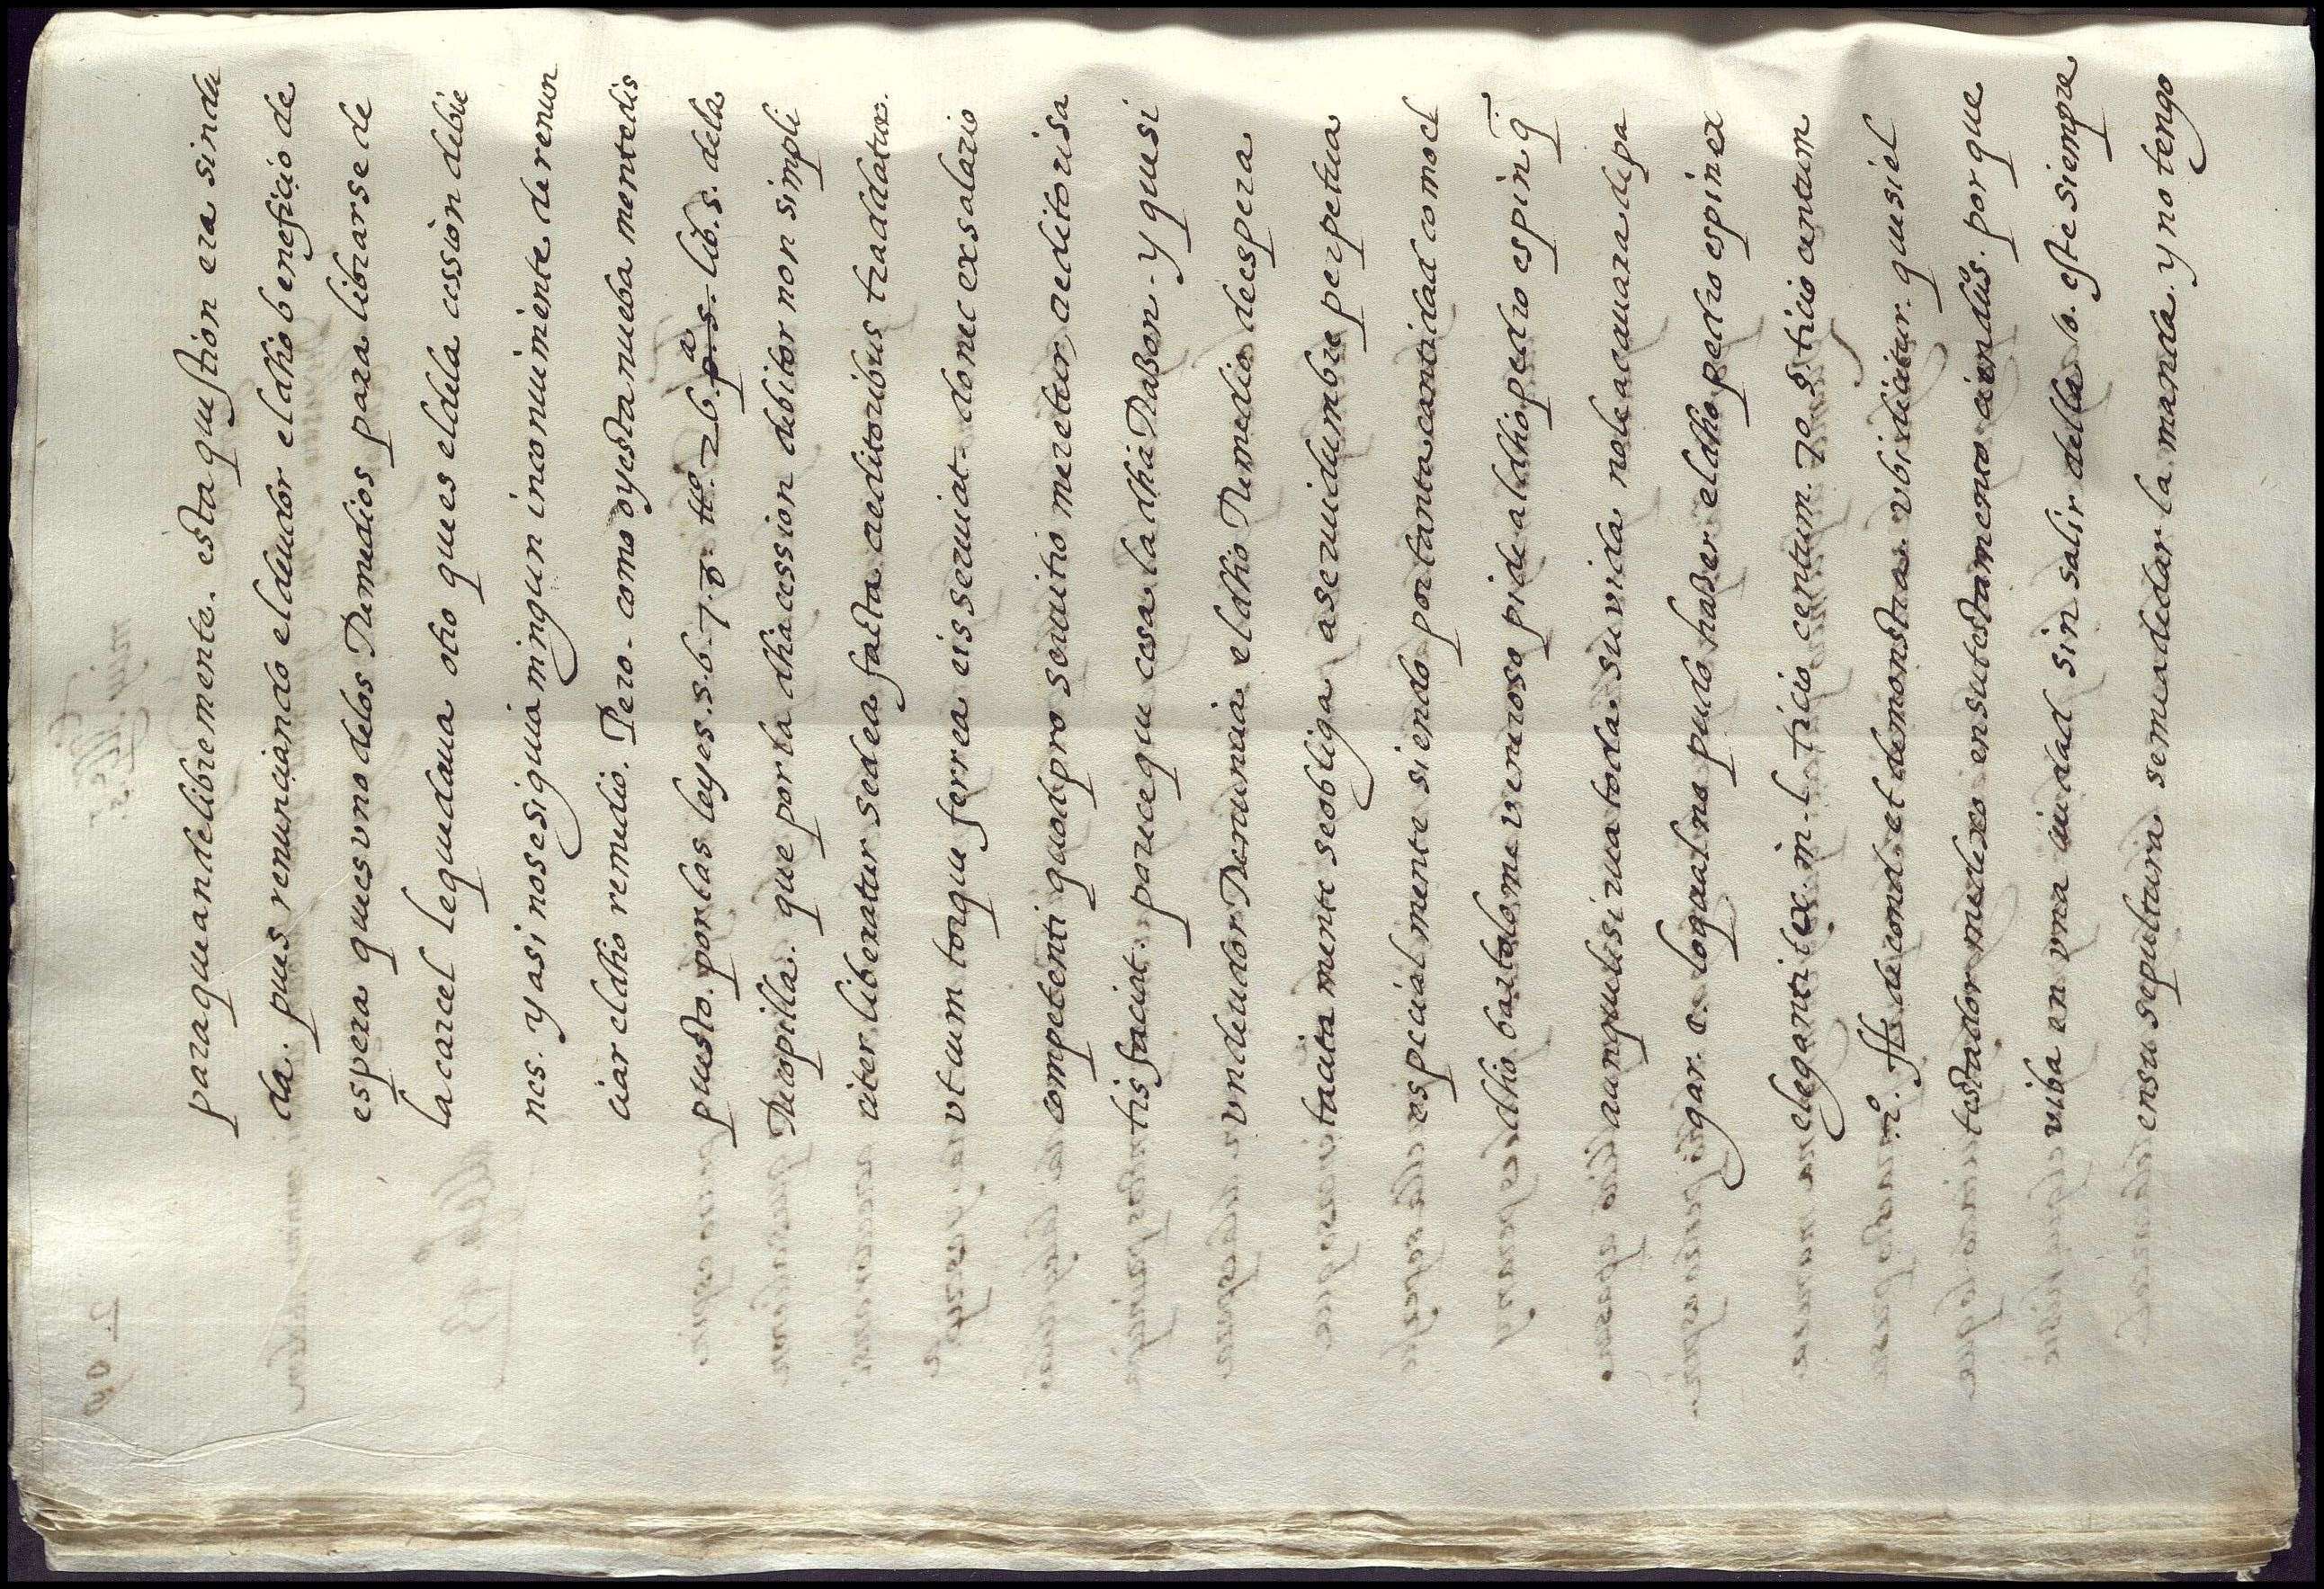 para que ande libremente. esta question era sin du
da. pues renunciando el deudor el dho beneficio de
espera que es vno delos Remedios para librarse de
la carcel le quedaua otro que es el dela cession debie
nes. y asi no se siguia ningun inconuiniente de renun
ciar el dho remedio. Pero. como oy esta nueba mente dis
puesto. por las leyes. 5. 6. 7. 8. tto. 26. p.s. lib. 5. dela
Recopilla. que por la dha cession debitor non simpli
citer liberatur sed ea facta creditoribus tradatur.
vt cum torque ferrea eis seruiat. donec ex salario
competenti quod pro seruitio meretur, creditori sa
tisfaciat. parece que cesa la dha Razon. y que si
vn deudor Renuncia el dho Remedio de espera
tacita mente se obliga a seruidumbre perpetua
especial mente siendo por tanta cantidad como el
dho bartolome veneroso pide al dho pedro espin q
aunque le sirua toda su vida no le acauara de pa
gar. lo qual no pudo hazer el dho pedro espin ex
eleganti tex. in. l. ticio centum. 70. §. ticio centum
ff. de cond. et demonstra. vbi dicitur. que si el
testador me dexo en su testamento cien d̃os. por que
viba en vna ciudad sin salir della o. este siempre
en su sepultura se me a de dar la manda. y no tengo